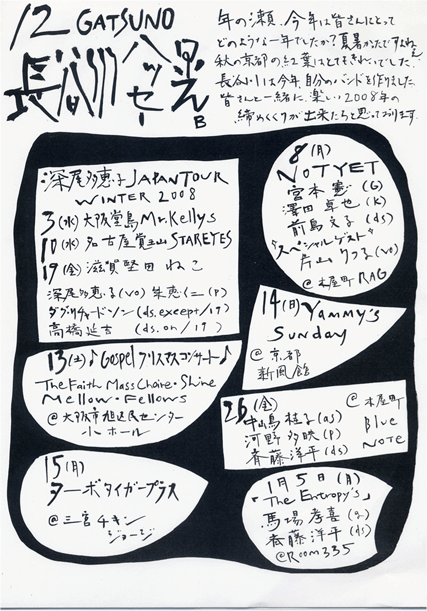 12 GATSUNO
長谷川ハッセー晃 B
年の瀬、今年は皆さんにとって
どのような一年でしたか？夏暑かったですよね
秋の京都の紅葉はとてもきれいでした。
長谷川は今年自分のバンドを作りました
皆さんと一緒に、楽しい2008年の
締めくくりが出来たらと思っております。
深尾多恵子JAPAN TOUR
WINTER 2008
3(水)大阪堂島Mr.Kellys
10(水)名古屋覚王山STAREYES
19(金)滋賀堅田ねこ
深尾多恵子(vo) 朱恵仁(p)
ダグリチャードソン(ds.except/19)
高橋延吉 (ds.on/19)
8(月)
NOTYET
宮本憲(G)
澤田卓也(K)
前島文子(ds)
"スペシャルゲスト"
片山りつ子(vo)
@木屋町RAG
13(土)♪Gospelクリスマスコンサート♪
The Faith Mass Choire・Shine
Mellow・Fellows
@大阪市旭区民センター
小ホール
14(日)Yammy's
Sunday
@京都
新風館
26(金)
中島桂子(as)
河野多映(p)
斉藤洋平(ds)
@木屋町
Blue
NOTE
15(月)
ターボタイガープラス
@三宮チキン
ジョージ
1月5日(月)
「The Entropy's」
馬場孝喜(g)
斉藤洋平(ds)
@Room335